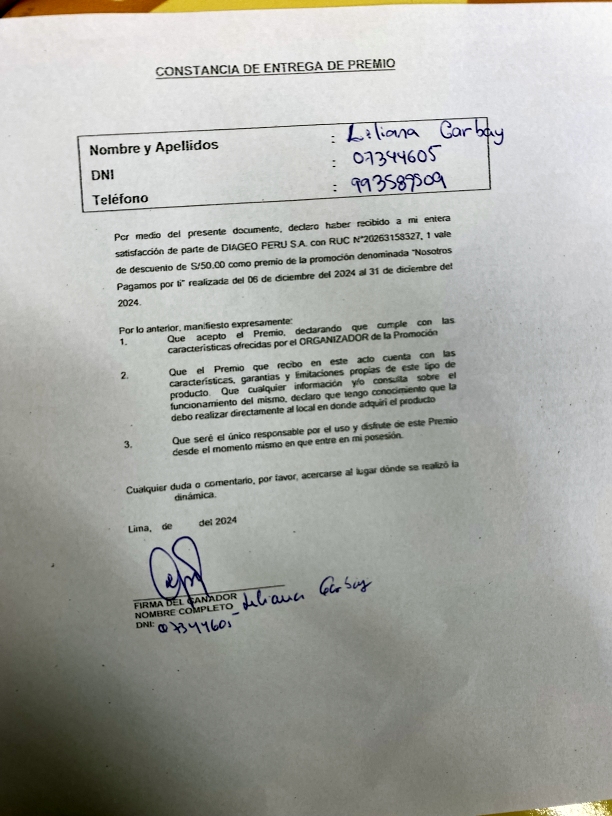 CONSTANCIA DE ENTREGA DE PREMIO
Nombre y Apellidos : Liliana Garbay
DNI : 07344605
Teléfono : 993589509
Por medio del presente documento, declaro haber recibido a mi entera
satisfacción de parte de DIAGEO PERU S.A. con RUC N°20263158327, 1 vale
de descuento de S/50.00 como premio de la promoción denominada "Nosotros
Pagamos por ti" realizada del 06 de diciembre del 2024 al 31 de diciembre del
2024.
Por lo anterior, manifiesto expresamente:
1. Que acepto el Premio, declarando que cumple con las
características ofrecidas por el ORGANIZADOR de la Promoción
2. Que el Premio que recibo en este acto cuenta con las
características, garantías y limitaciones propias de este tipo de
producto. Que cualquier información y/o consulta sobre el
funcionamiento del mismo, declaro que tengo conocimiento que la
debo realizar directamente al local en donde adquirí el producto
3. Que seré el único responsable por el uso y disfrute de este Premio
desde el momento mismo en que entre en mi posesión.
Cualquier duda o comentario, por favor, acercarse al lugar dónde se realizó la
dinámica.
Lima, de del 2024
FIRMA DEL GANADOR
NOMBRE COMPLETO Liliana Garbay
DNI: 07344605